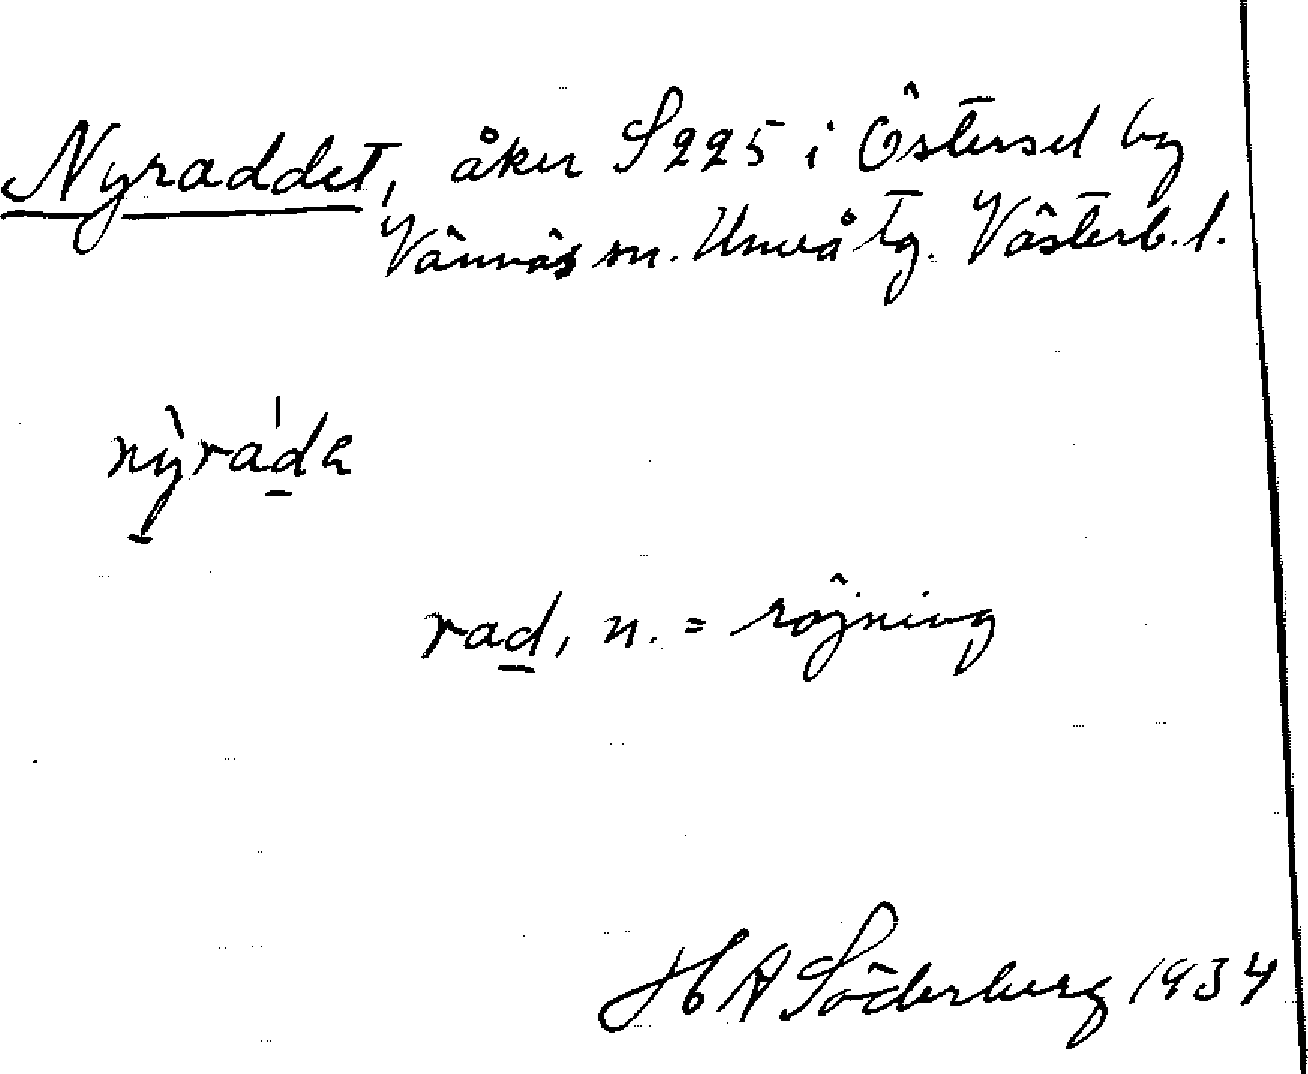 Nyraddet, åker S225 i Östersel by
Vännäs sn. Umeå tg. Västerb. l.
nỳráda
rad, n. = röjning
H A Söderberg 1934